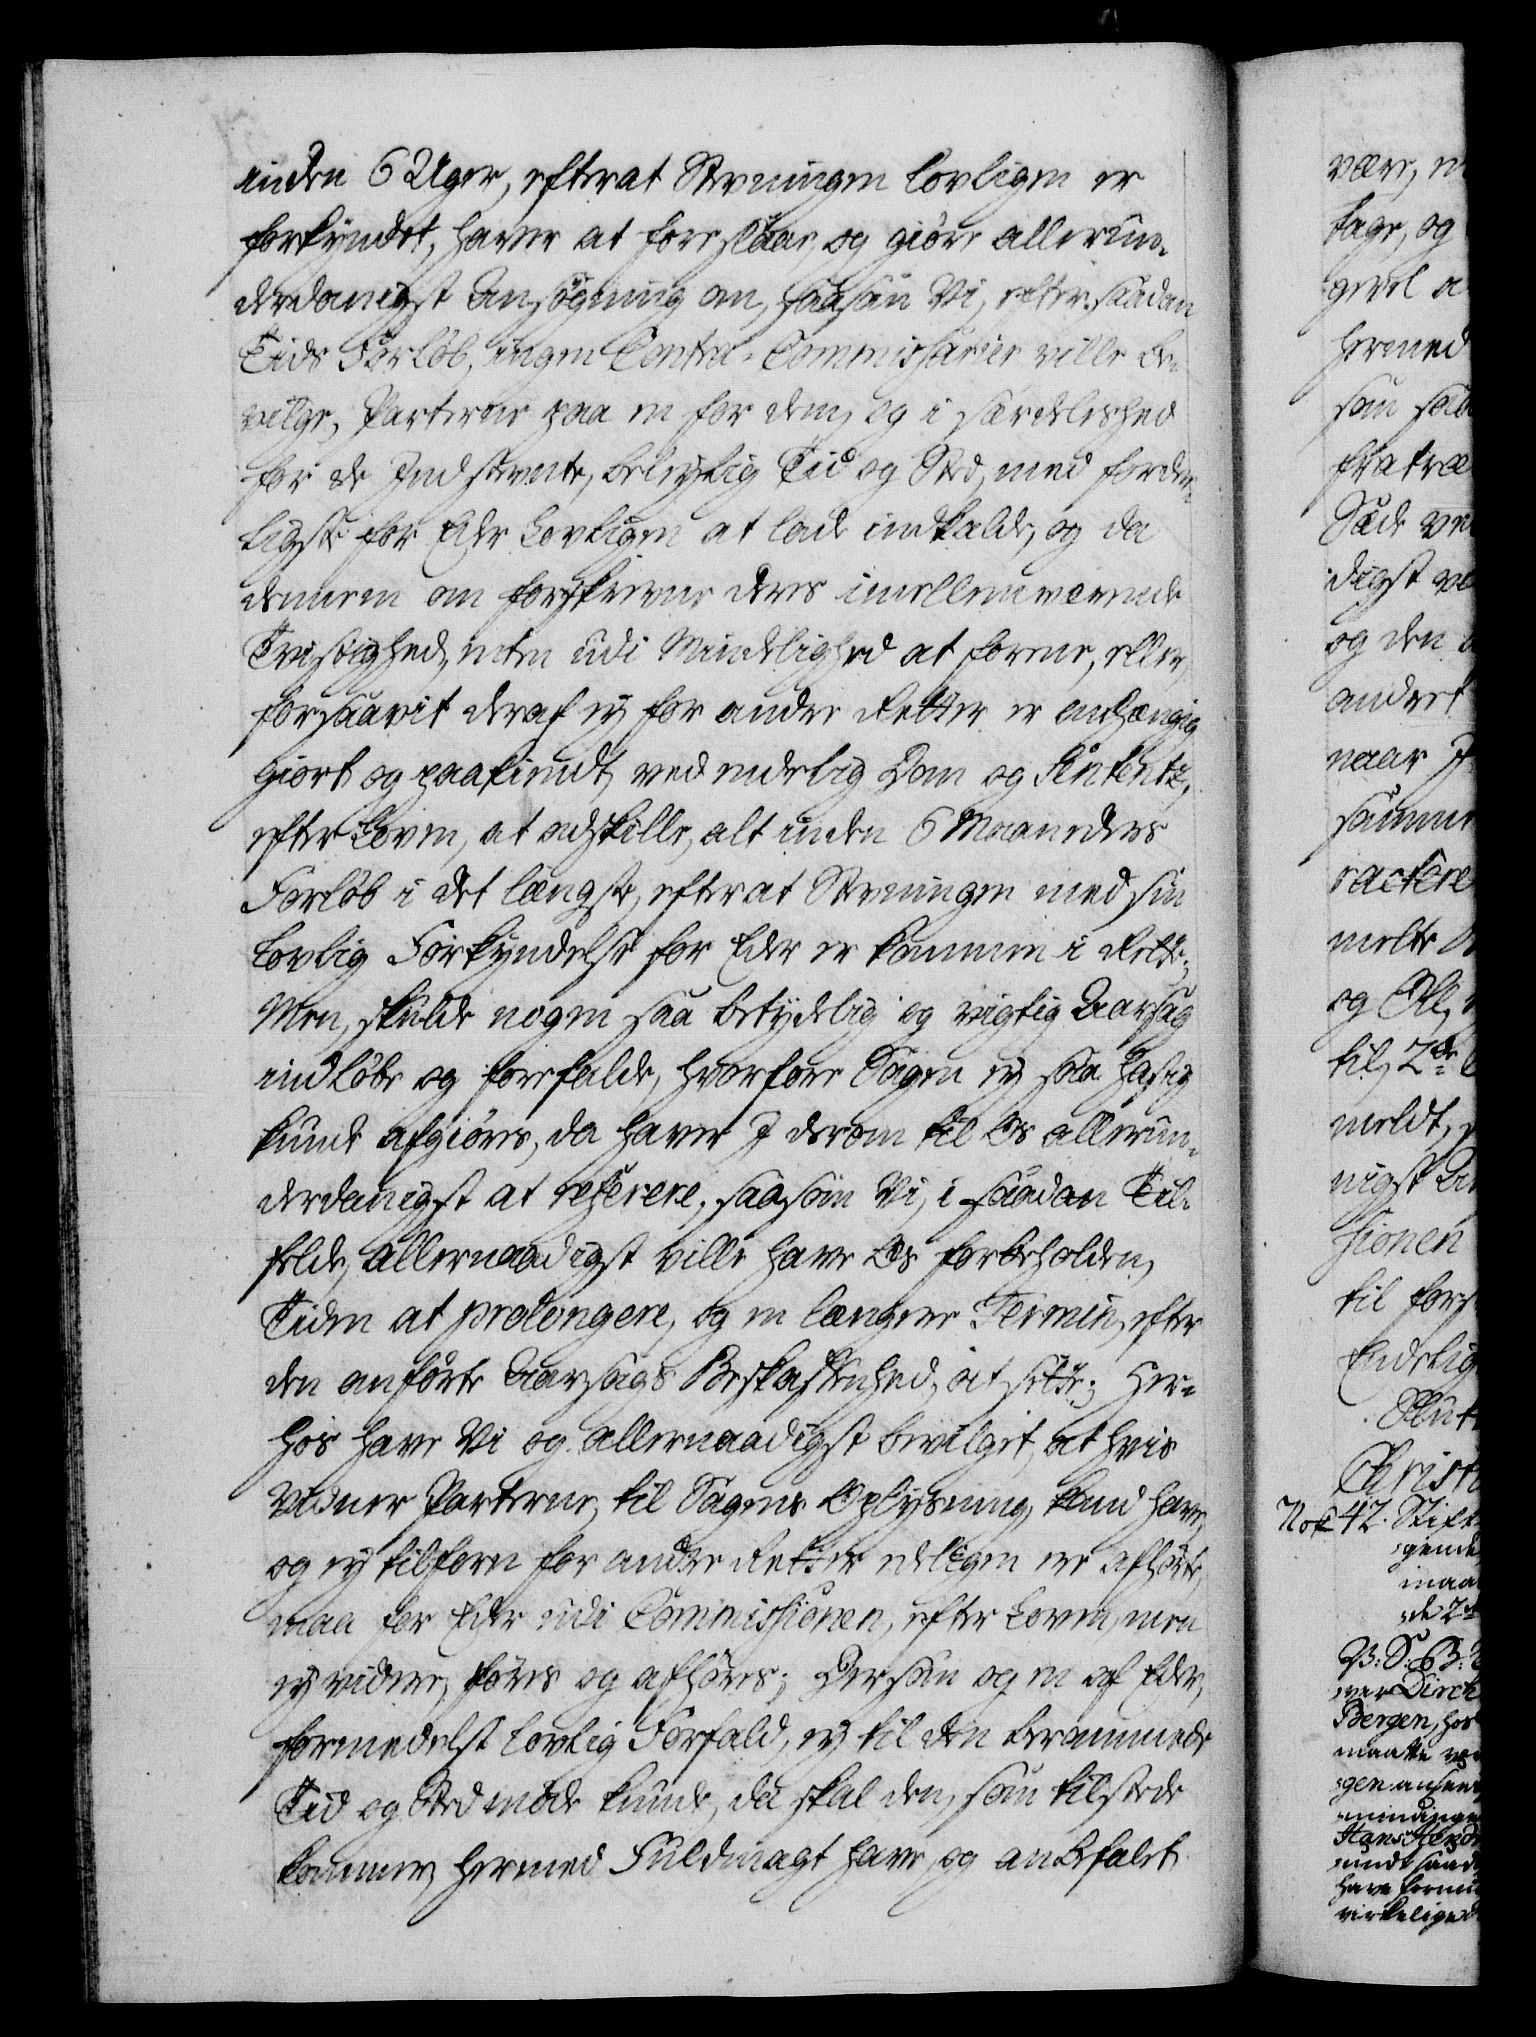 inden 6 Uger, efterat Stevningen lovligen er
forkyndet, haver at foreslaae, og giøre allerun-
derdanigst Ansøgning om, saasom Vi, efter saadan
Tids Forløb, ingen Contra-Commissarier ville be-
vilge, Parterne paa en for dem, og i særdeleshed
for de Indstevnte, beleylig Tid og Sted, med forder-
ligste for Eder lovligen at lade indkalde, og da
dennem om forskrevne deres imellemværende
Tvistighed, enten udi Mindelighed at forene, eller,
forsaavit deraf ey for andre Retter er anhængig
giort og paakiendt, ved endelig Dom og Sentents,
efter Loven, at adskille, alt inden 6 Maaneders
Forløb i det længste, efterat Stevningen med sin
lovlig Forkyndelse for Eder er kommen i Rette;
Men, skulde nogen saa betydelig og vigtig Aarsag
indløbe og forefalde, hvorfore Sagen ey saa hastig
kunde afgiøres, da haver I derom til Os allerun-
derdanigst at referere, saasom Vi, i saadan Til-
felde, allernaadigst ville have Os forbeholden,
Tiden at prolongere, og en længere Termin, efter
den anførte Aarsags Beskaffenhed, at sette; Her-
hos have Vi og allernaadigst bevilget, at hvis
Vidner Parterne, til Sagens Oplysning, kand have,
og ey tilforn for andre Retter edeligen ere afhørte,
maa for Eder udi Commissionen, efter Loven, men
ey videre, føres og afhøres; Dersom og en af Eder,
formedelst lovlig Forfald, ey til den berammede
Tid og Sted møde kunde, da skal den, som tilstede
kommer, hermed Fuldmagt have, og anbefalet
være,
tage, og
gevel a
hermed
som
fratræ
digst
og den
andret
naar
samme
meldte
og
til 2de
meldt,
nigst
sionen
til
Endelig
Christ
Not 42. Stift
Dirck
Bergen, hos
maatte
Hans
have